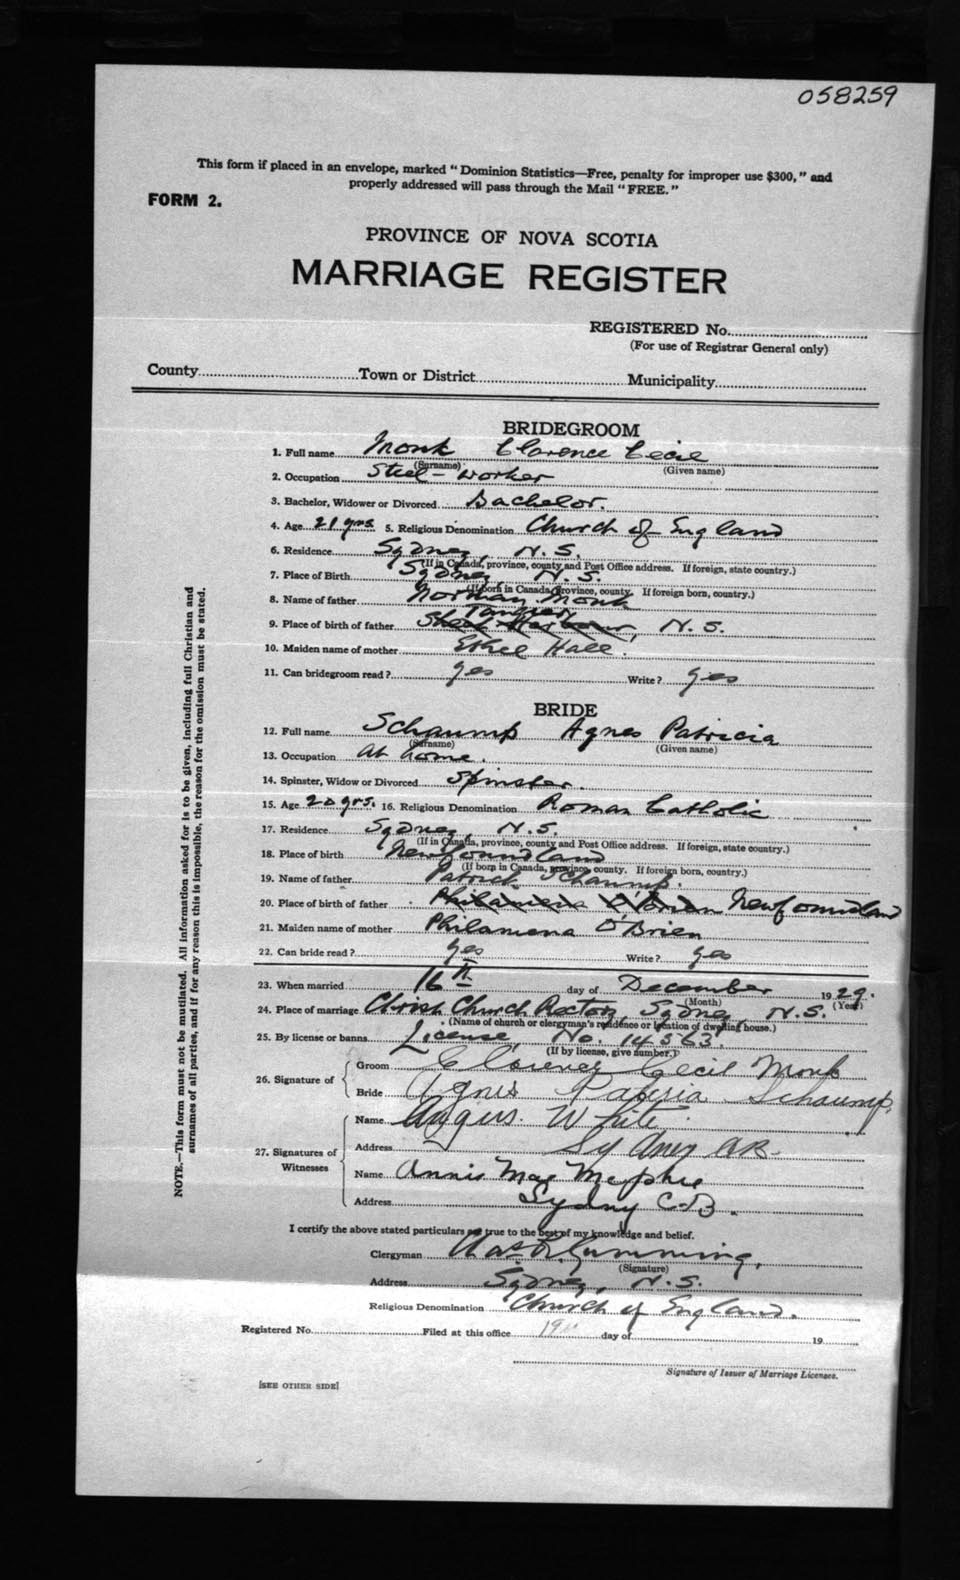 058259
This form if placed in an envelope, marked "Dominion Statistics—Free, penalty for improper use $300," and
properly addressed will pass through the Mail "FREE."
FORM 2.
PROVINCE OF NOVA SCOTIA
MARRIAGE REGISTER
REGISTERED No.
(For use of Registrar General only)
County Town or District Municipality
BRIDEGROOM
1. Full name Monk Clarence Cecil
(Surname) (Given name)
2. Occupation Steel-worker
3. Bachelor, Widower or Divorced Bachelor.
4. Age 21 yrs 5. Religious Denomination Church of England
6. Residence Sydney, N.S.
(If in Canada, province, county and Post Office address. If foreign, state country.)
7. Place of Birth Sydney N.S.
(If born in Canada, province, county. If foreign born, country.)
8. Name of father Norman Monk
Tangier
9. Place of birth of father Sheet Harbour, N.S.
10. Maiden name of mother Ethel Hall.
11. Can bridegroom read? yes Write? yes
BRIDE
12. Full name Schaump Agnes Patricia
(Surname) (Given name)
13. Occupation at home.
14. Spinster, Widow or Divorced Spinster.
15. Age 20 yrs. 16. Religious Denomination Roman Catholic
17. Residence Sydney, N.S.
(If in Canada, province, county and Post Office address. If foreign, state country.)
18. Place of birth Newfoundland
(If born in Canada, province, county. If foreign born, country.)
19. Name of father Patrick Schaump.
20. Place of birth of father Philamena O'Brien Newfoundland
21. Maiden name of mother Philamena O'Brien
22. Can bride read? yes Write? yes
23. When married 16th day of December 1929.
(Month) (Year)
24. Place of marriage Christ Church Rectory, Sydney, N.S.
(Name of church or clergyman's residence or location of dwelling house.)
25. By license or banns License, No. 14563.
(If by license, give number.)
26. Signature of
Groom Clarence Cecil Monk
Bride Agnes Patricia Schaump
27. Signatures of Witnesses
Name Angus White
Address Sydney CB.
Name Annie Mae McPhee
Address Sydney C.B.
I certify the above stated particulars are true to the best of my knowledge and belief.
Clergyman Chas R. Cumming.
(Signature)
Address Sydney, N.S.
Religious Denomination Church of England.
Registered No. Filed at this office day of 19
Signature of Issuer of Marriage Licenses.
[SEE OTHER SIDE]
NOTE.—This form must not be mutilated. All information asked for is to be given, including full Christian and
surnames of all parties, and if for any reason this is impossible, the reason for the omission must be stated.